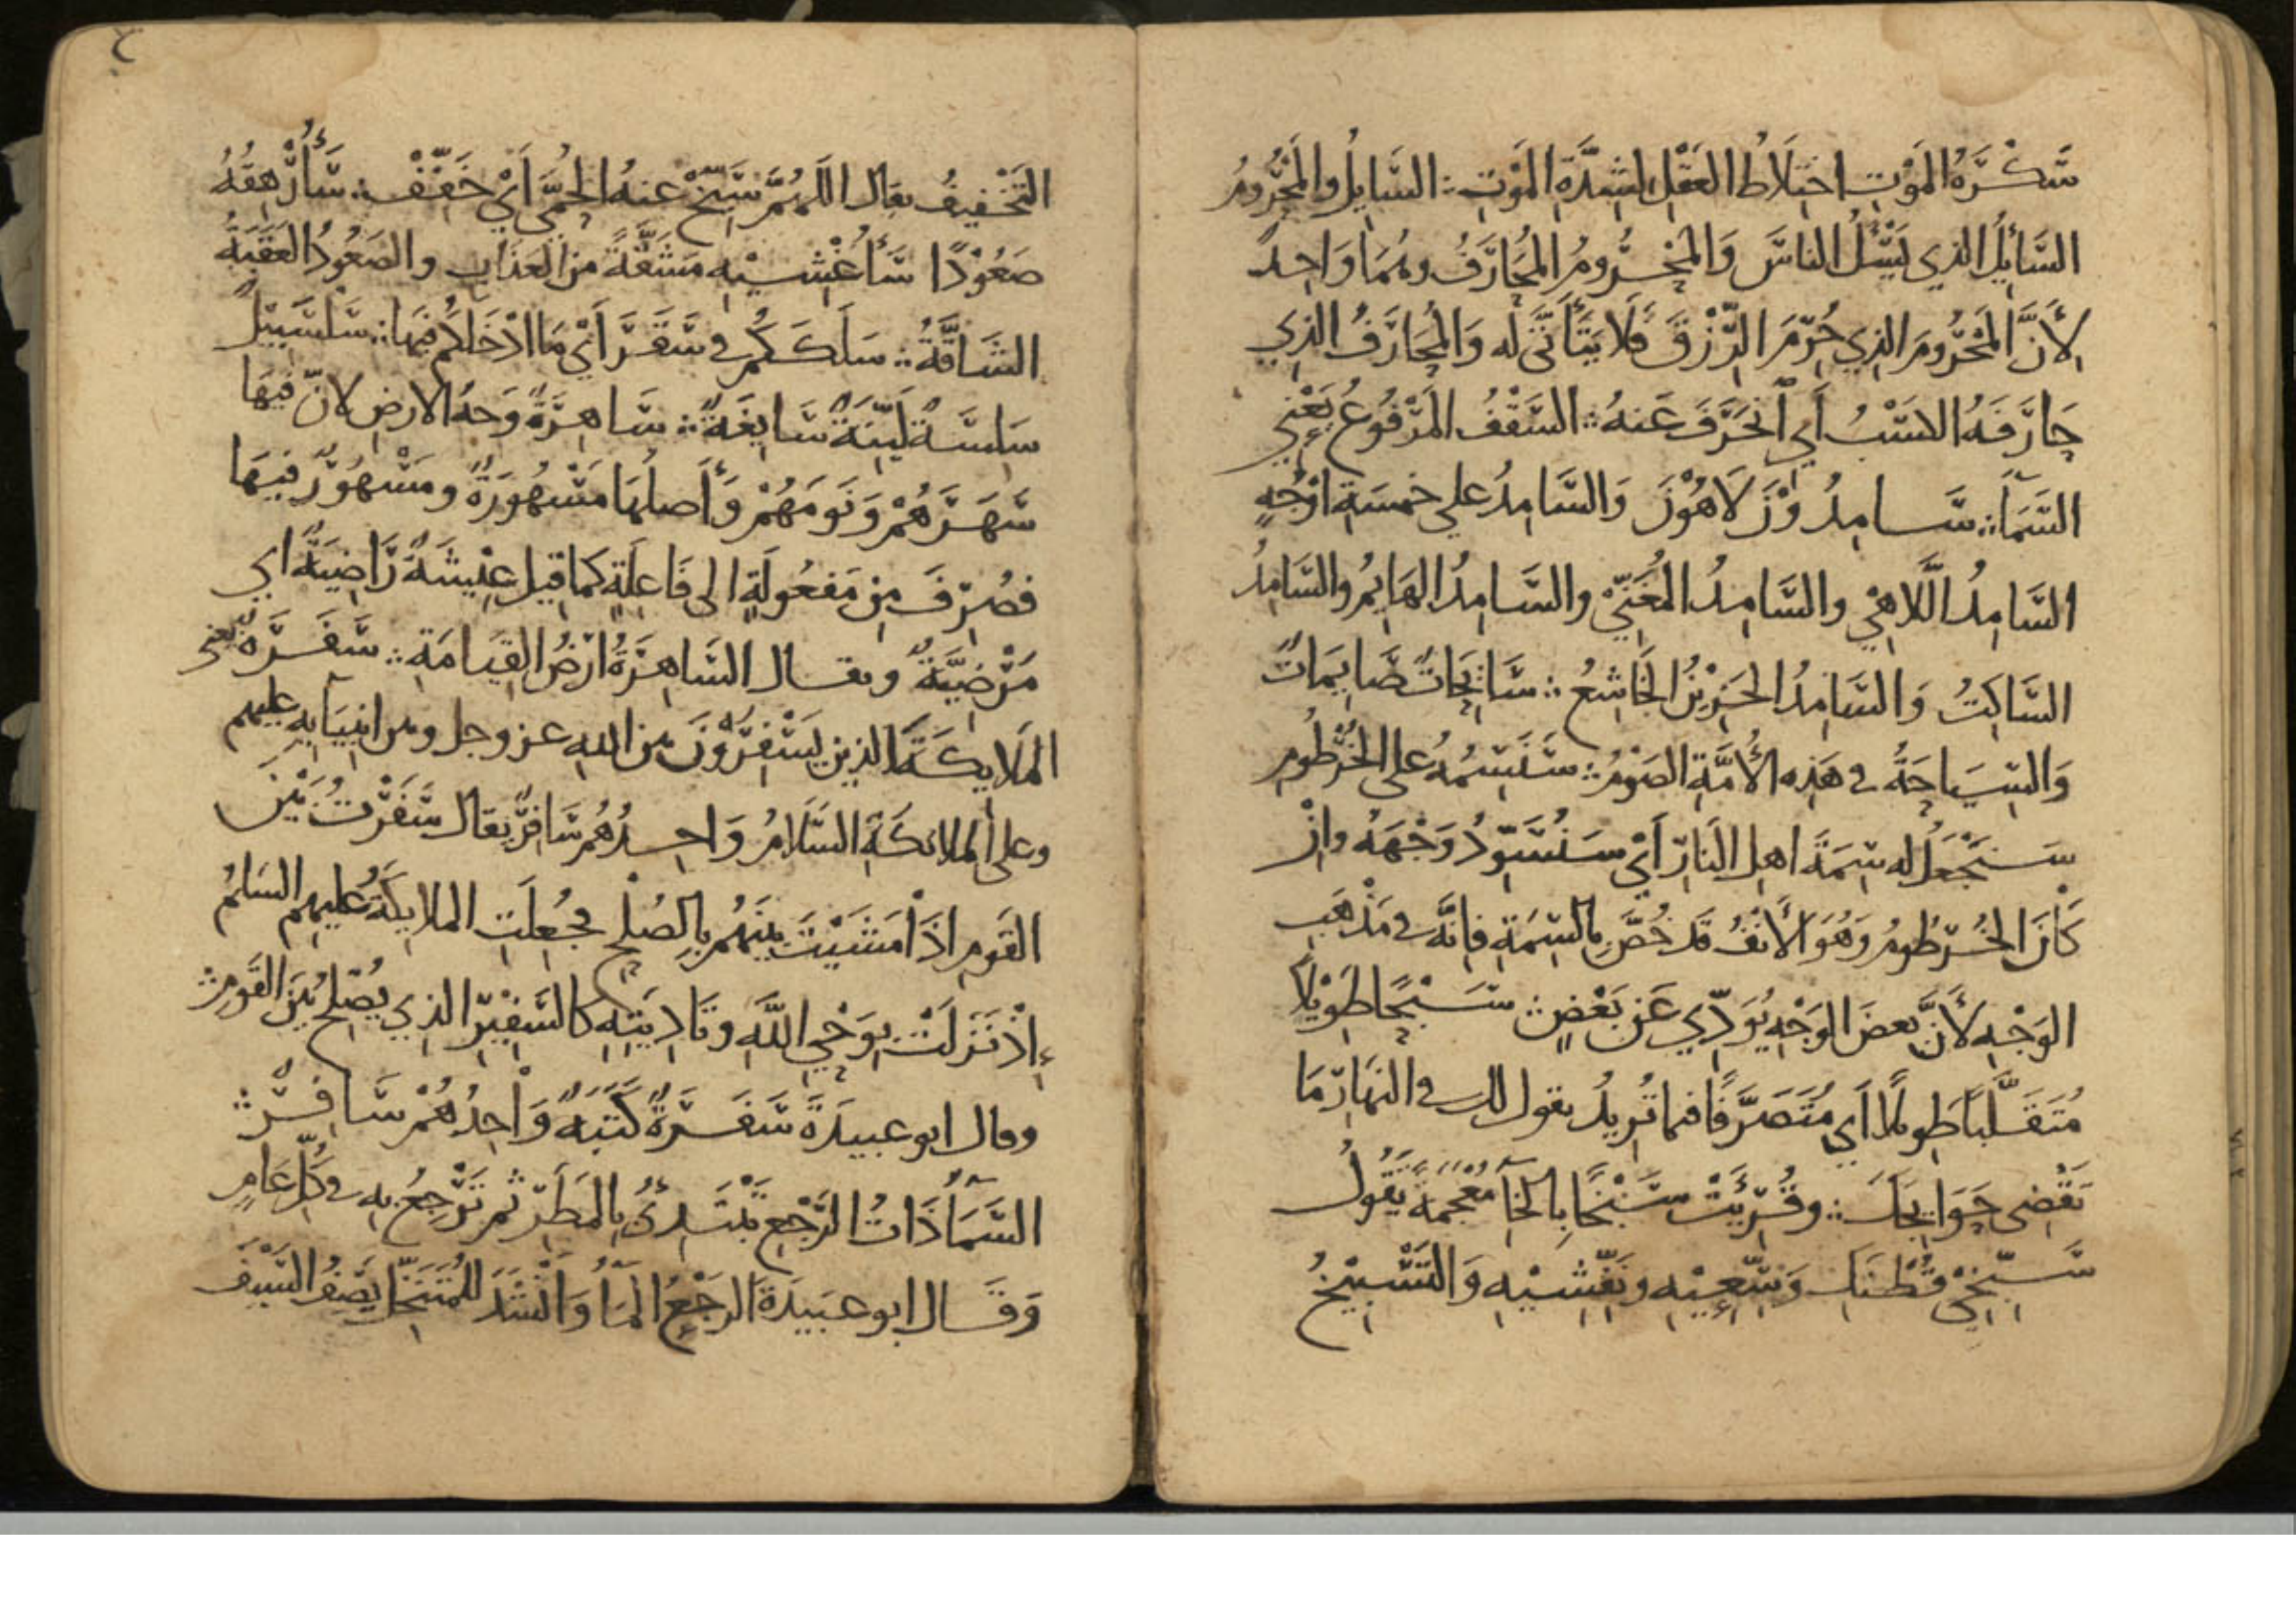 سَكْرَةُ المَوْتِ اختِلَاطُ العَقْلِ لِشِدَّةِ المَوْتِ ؞ السَّايِلُ والمَحْرُومُ
السَّائِلُ الذي يَسْئَلُ الناسَ وَالمَحْرُومُ المُحَارَفُ وهُمَا وَاحِدٌ
لِأَنَّ المَحْرُومَ الذِي حُرِمَ الرِّزْقَ فَلَا يَتَأَتَّى له وَالمُحَارَفُ الذِي
حَارَفَهُ الكَسْبُ أَيِ انْحَرَفَ عَنهُ ؞ السَّقْفُ المَرْفُوعُ يَعْنِي
السَّمَآءَ ؞ سَامِدُوْنَ لَاهُوْنَ وَالسَّامِدُ على خمسَةِ اوْجُهٍ
السَّامِدُ اللَّاهِي والسَّامِدُ المُغَنِّي والسَّامِدُ الهَايِمُ والسَّامِدُ
السَّاكِتُ وَالسَّامِدُ الحَزِيْنُ الخَاشِعُ ؞ سَايِحَاتٌ صَايِمَاتٌ
وَالسِّيَاحَةُ في هَذِه الأُمَّةِ الصَوْمُ ؞ سَنَسِمُهُ على الخُرْطُومِ
سَنَجْعَلُ له سِمَةَ اهلِ النَارِ أَيْ سَنُسَوِّدُ وَجْهَهُ وانْ
كَانَ الخُرْطُومُ وَهُوَ الأَنْفُ قَد خُصَّ بِالسِّمَةِ فإنَّه في مَذْهَبِ
الوَجْهِ لأَنَّ بعضَ الوَجْهِ يُؤَدِّي عَن بَعْضٍ ؞ سَبْحًا طَوِيْلًا
مُتَقَلَّبًا طويلًا أَي مُتَصَرَّفًا فيما تُرِيدُ يقول لك في النهَارِ مَا
تَقْضِي حَوَايجَكَ ؞ وقُرِئَتْ سَبْخًا بِالخَآءِ مُعْجَمَةً يَقُولُ
سَبِّخِيْ قُطْنَكِ وَسِّعِيْهِ ونَفِّشِيْهِ وَالتَّسْبِيْخُ
التَّخْفِيفُ يقال اللهُمَّ سَبِّخْ عَنهُ الحُمَّى أَيْ خَفِّفْ ؞ سَأُرْهِقُهُ
صَعُوْدًا سَأُغْشِيْهِ مَشَقَّةً من العَذَابِ والصَعُوْدُ العَقَبَةُ
الشَاقَّةُ ؞ سَلَكَكُمْ في سَقَرَ أَيْ مَا ادْخَلَكُمْ فيهَا ؞ سَلْسَبِيْلٌ
سَلِسَةٌ لَيِّنَةٌ سَايِغَةٌ ؞ سَاهِرَةٌ وَجهُ الارضِ لانّ فيهَا
سَهَرَهُمْ وَنَومَهُمْ وَأَصلُهَا مَسْهُورَةٌ ومَسْهُوْرٌ فيهَا
فصُرِفَ مِن مَفعُولَةٍ الى فَاعِلَةٍ كما قيل عِيْشَةٌ رَاضِيَةٌ اي
مَرْضِيَّةٌ ويقال السَّاهِرَةُ ارْضُ القِيَامَةِ ؞ سَفَرَةٌ يعني
المَلَايِكَةَ الذِين يَسْفِرُوْنَ بَيْنَ اللهِ عز وجل وبين انبِيَايِهِ عليهم
وعلى الملائكَةِ السَّلَامُ وَاحِدُهُمْ سَافِرٌ يقال سَفَرْتُ بَيْنَ
القَومِ اذَا مَشَيْتَ بينَهُمْ بِالصُلْحِ فجُعِلَتِ الملايِكَةُ عليهِم السَلمُ
إِذْ نَزَلَتْ بِوَحْيِ اللهِ وتَادِيَتِهِ كالسَّفِيْرِ الذِي يُصْلِحُ بَيْنَ القَومِ ؞
وقال ابو عبيدَةَ سَفَرَةٌ كَتَبَةٌ وَاحِدُهُمْ سَافِرٌ ؞
السَّمَآءُ ذَاتُ الرَّجْعِ تَبْتَدِئُ بِالمَطَرِ ثم تَرْجِعُ به في كُلِّ عَامٍ
وَقَالَ ابو عبَيدَةَ الرَجْعُ المَآءُ وَأَنْشَدَ لِلمُتَنَخِّلِ يَصِفُ السَّيْفَ